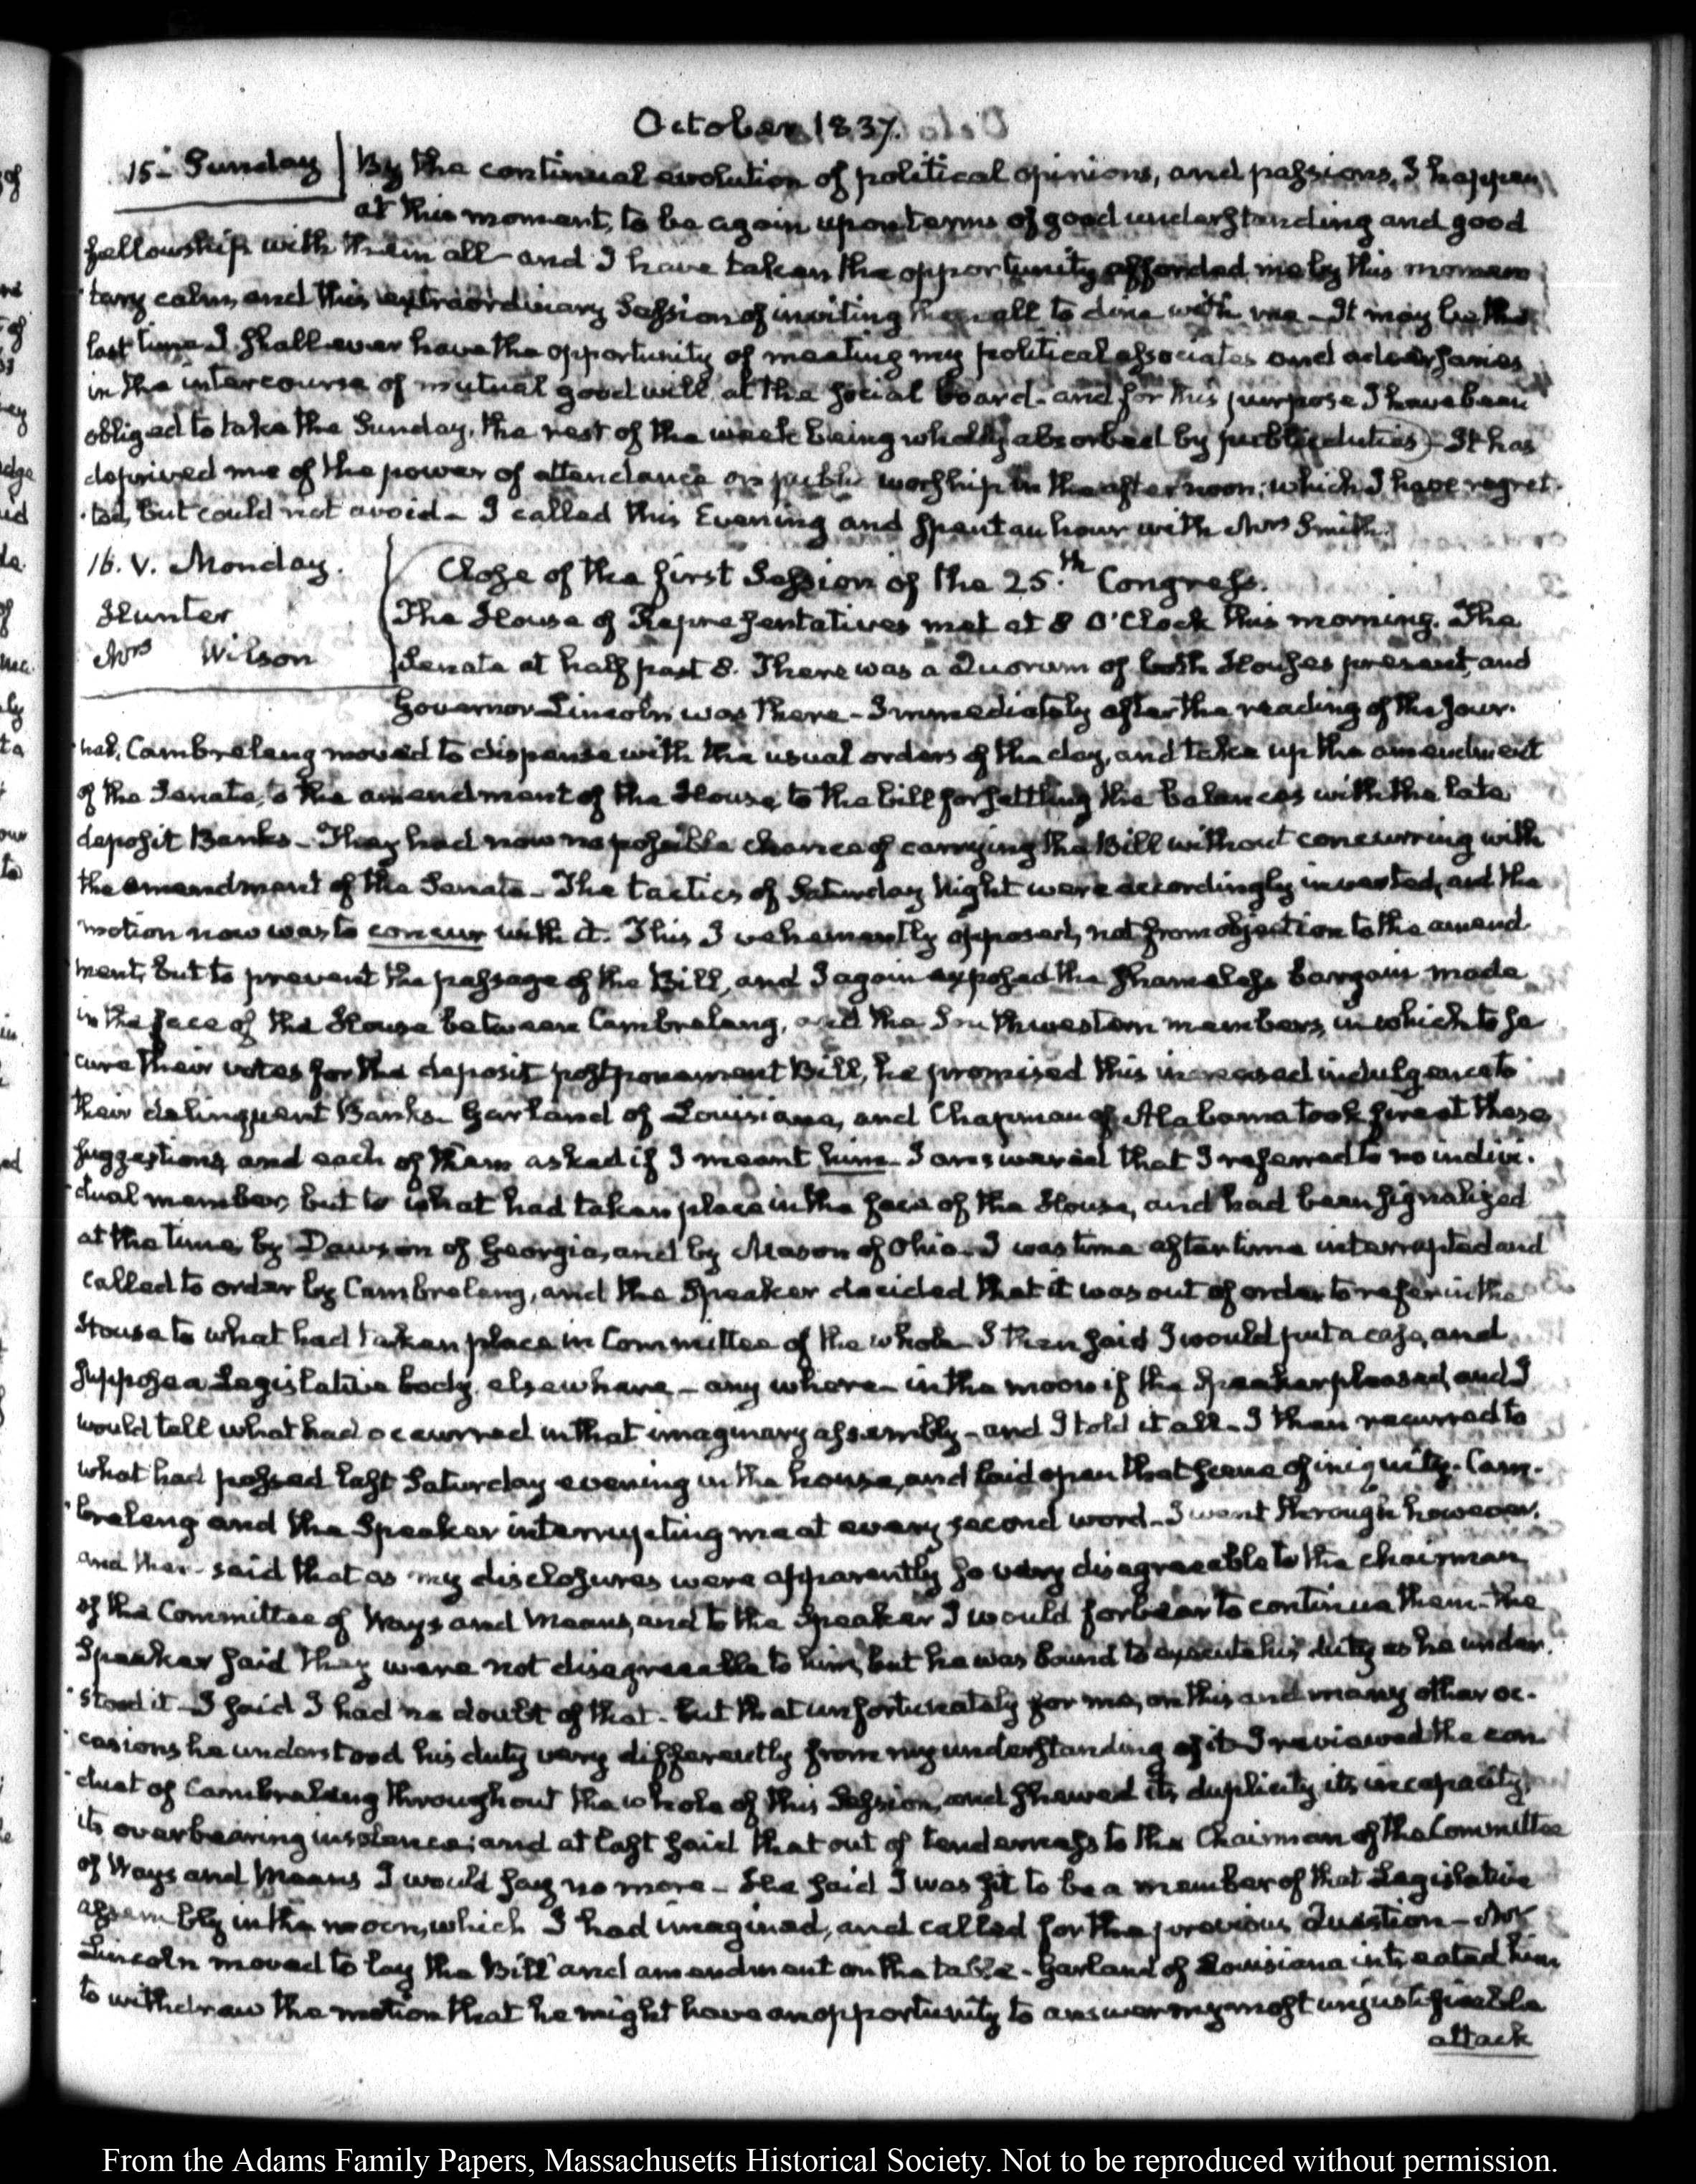 October 1837.
15. Sunday
By the continual evolution of political opinions, and passions, I happen
at this moment, to be again upon terms of good understanding and good
fellowship with them all— and I have taken the opportunity afforded me by this momen
tary calm, and this extraordinary Session of inviting them all to dine with me— It may be the
last time I shall ever have the opportunity of meeting my political associates and adversaries
in the intercourse of mutual good will, at the social board— and for this purpose I have been
obliged to take the Sunday, the rest of the week being wholly absorbed by public duties— It has
deprived me of the power of attendance on public worship in the afternoon; which I have regret-
-ted, but could not avoid— I called this Evening and spent an hour with Mrs Smith.
16. V. Monday.
Hunter
Mrs Wilson
Close of the first Session of the 25.th Congress.
The House of Representatives met at 8 O'Clock this morning. The
Senate at half past 8. There was a Quorum of both Houses present, and
Governor Lincoln was there— Immediately after the reading of the Jour-
-nal, Cambreleng moved to dispense with the usual orders of the day, and take up the amendment
of the Senate, to the amendment of the House, to the bill for settling the balances with the late
deposit Banks— They had now no possible chance of carrying the Bill without concurring with
the amendment of the Senate— The tactics of Saturday Night were accordingly inverted, and the
motion now was to concur with it. This I vehemently opposed, not from objection to the amend
ment, but to prevent the passage of the Bill, and I again exposed the shameless bargain made
in the face of the House between Cambreleng, and the Southwestern members, in which to se
cure their votes for the deposit postponement Bill, he promised this increased indulgence to
their delinquent Banks— Garland of Louisiana, and Chapman of Alabama took fire at these
suggestions, and each of them asked if I meant him— I answered that I referred to no indivi-
-dual member, but to what had taken place in the face of the House, and had been signalized
at the time, by Dawson of Georgia, and by Mason of Ohio— I was time after time interrupted and
called to order by Cambreleng, and the Speaker decided that it was out of order to refer in the
House to what had taken place in Committee of the whole— I then said I would put a case, and
suppose a Legislative body, elsewhere— any where— in the moon if the Speaker pleased, and I
would tell what had occurred in that imaginary assembly— and I told it all— I then recurred to
what had passed last Saturday evening in the house, and laid open that scene of iniquity. Cam-
-breleng and the Speaker interrupting me at every second word— I went through however,
and then said that as my disclosures were apparently so very disagreeable to the chairman
of the Committee of Ways and Means, and to the Speaker I would forbear to continue them— The
Speaker said they were not disagreeable to him, but he was bound to execute his duty as he under-
-stood it— I said I had no doubt of that— but that unfortunately for me, on this and many other oc-
-casions he understood his duty very differently from my understanding of it— I reviewed the con
-duct of Cambreleng throughout the whole of this Session, and shewed its duplicity, its incapacity,
its overbearing insolence; and at last said that out of tenderness to the Chairman of the Committee
of Ways and Means I would say no more— He said I was fit to be a member of that Legislative
assembly in the moon, which I had imagined, and called for the previous Question— Mr
Lincoln moved to lay the Bill and amendment on the table— Garland of Louisiana intreated him
to withdraw the motion that he might have an opportunity to answer my most unjustifiable
attack
From the Adams Family Papers, Massachusetts Historical Society. Not to be reproduced without permission.